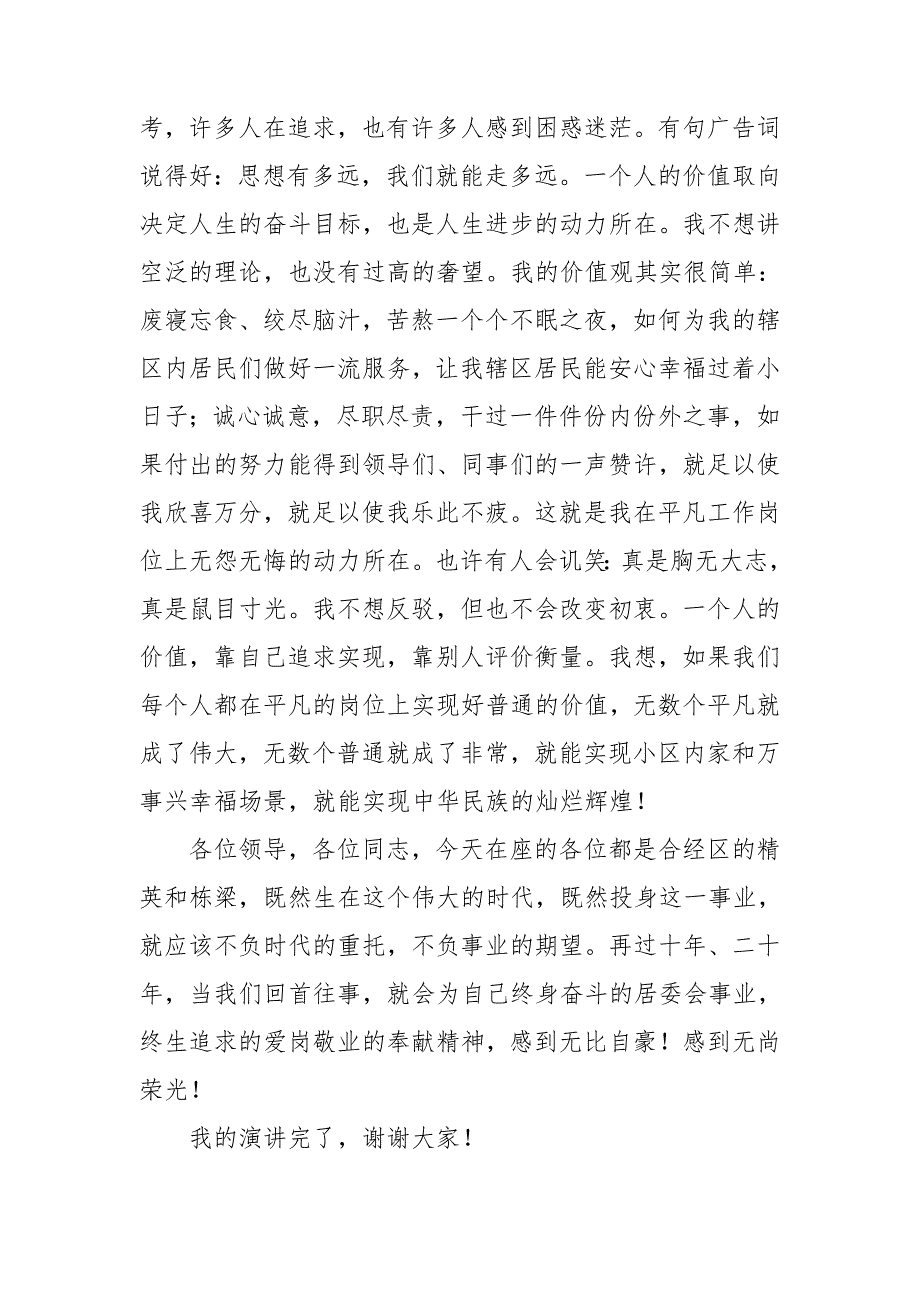 考，许多人在追求，也有许多人感到困惑迷茫。有句广告词
说得好：思想有多远，我们就能走多远。一个人的价值取向
决定人生的奋斗目标，也是人生进步的动力所在。我不想讲
空泛的理论，也没有过高的奢望。我的价值观其实很简单：
废寝忘食、绞尽脑汁，苦熬一个个不眠之夜，如何为我的辖
区内居民们做好一流服务，让我辖区居民能安心幸福过着小
日子；诚心诚意，尽职尽责，干过一件件份内份外之事，如
果付出的努力能得到领导们、同事们的一声赞许，就足以使
我欣喜万分，就足以使我乐此不疲。这就是我在平凡工作岗
位上无怨无悔的动力所在。也许有人会讥笑：真是胸无大志，
真是鼠目寸光。我不想反驳，但也不会改变初衷。一个人的
价值，靠自己追求实现，靠别人评价衡量。我想，如果我们
每个人都在平凡的岗位上实现好普通的价值，无数个平凡就
成了伟大，无数个普通就成了非常，就能实现小区内家和万
事兴幸福场景，就能实现中华民族的灿烂辉煌！
各位领导，各位同志，今天在座的各位都是合经区的精
英和栋梁，既然生在这个伟大的时代，既然投身这一事业，
就应该不负时代的重托，不负事业的期望。再过十年、二十
年，当我们回首往事，就会为自己终身奋斗的居委会事业，
终生追求的爱岗敬业的奉献精神，感到无比自豪！感到无尚
荣光！
我的演讲完了，谢谢大家！